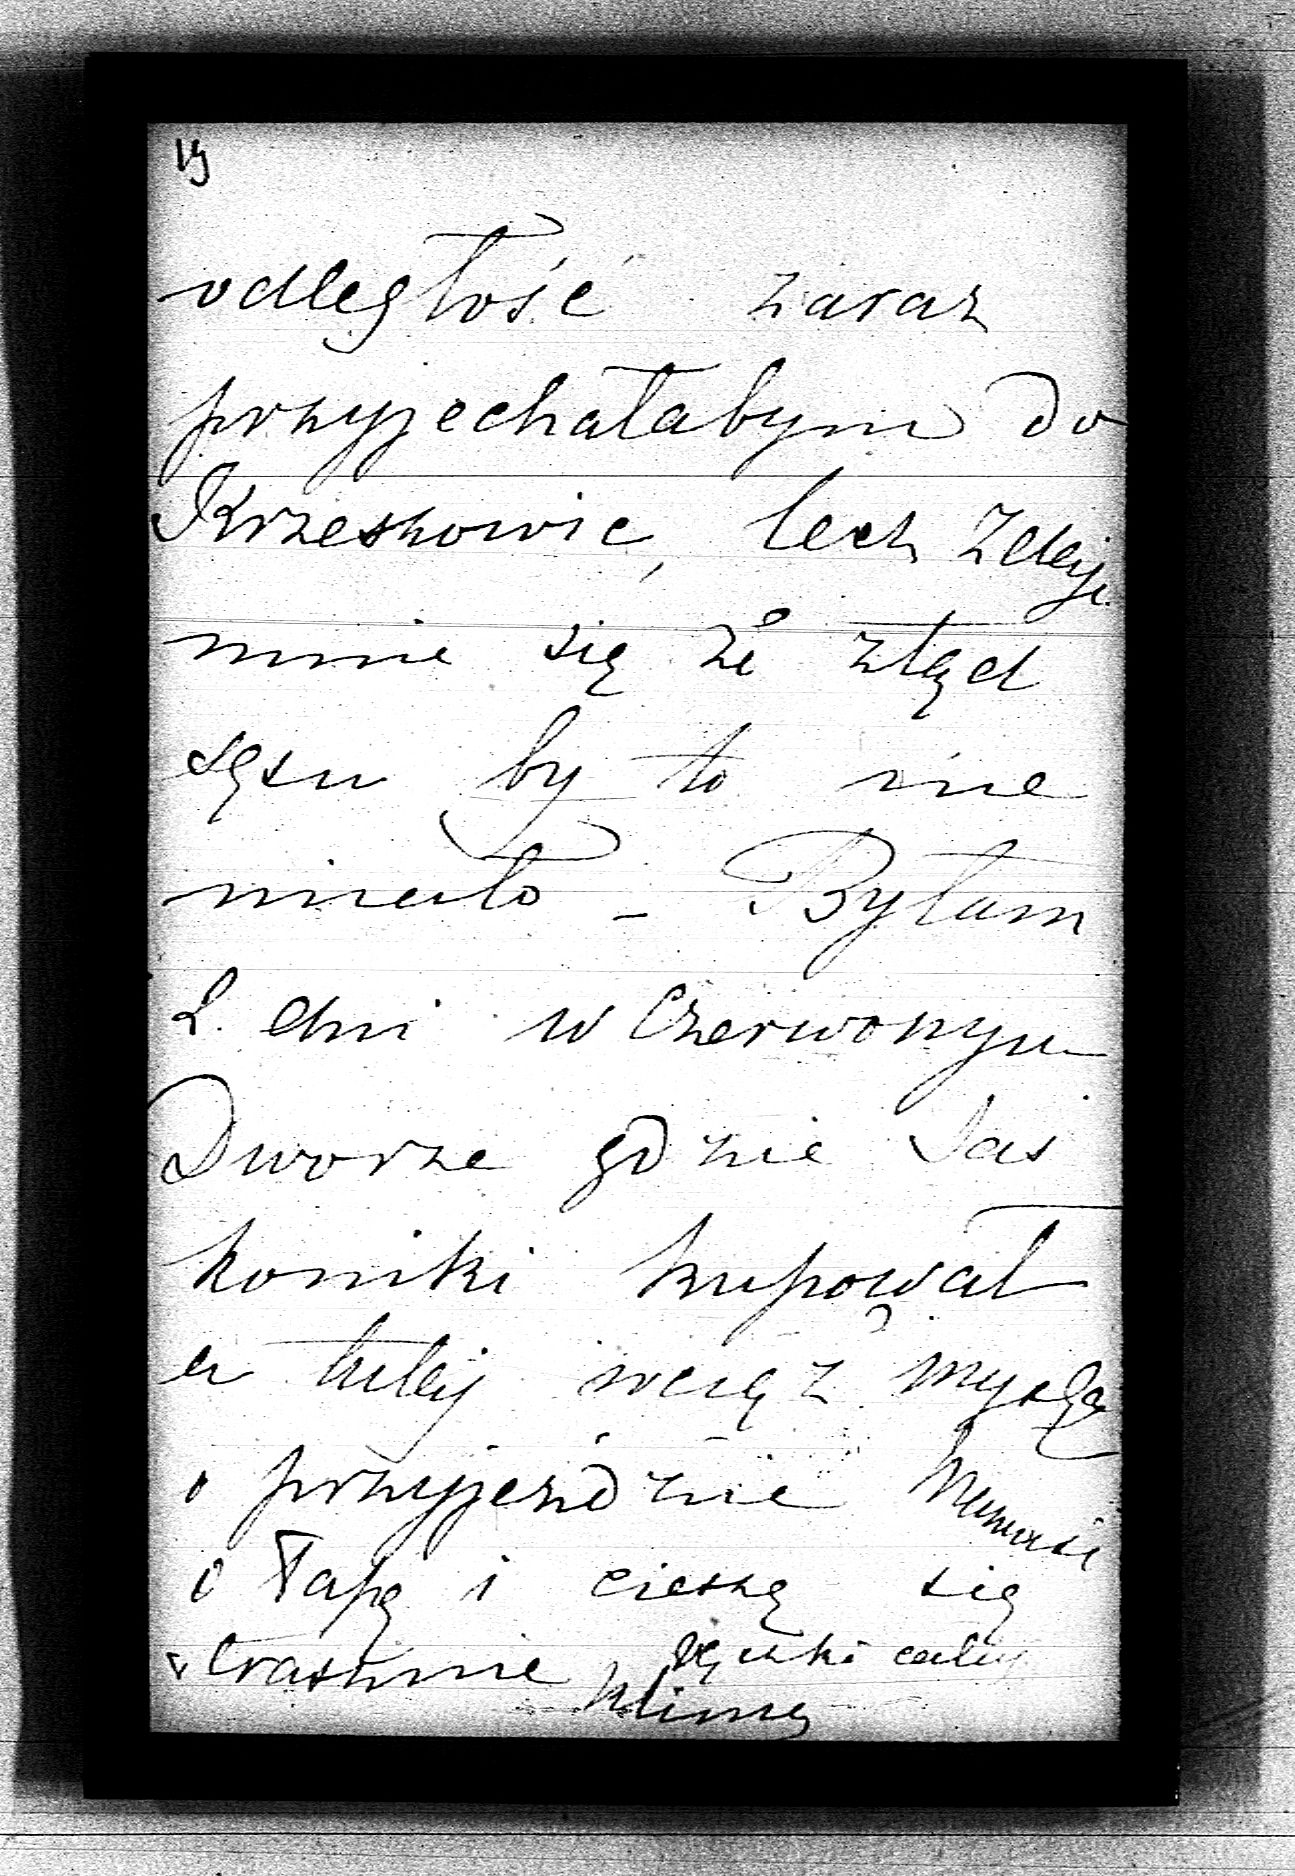 19
odległość zaraz
przyjechałabym do
Krzeszowic, lecz zdaje
mnie się że ztąd
sęsu by to nie
miało - Byłam
2. dni w Czerwonym
Dworze gdzie Jaś
koniki kupował
a tutej wciąż myślę
o przyjeździe Mamusi
o Tapę i cieszę się
strasznie Rączki całuj
Klimą